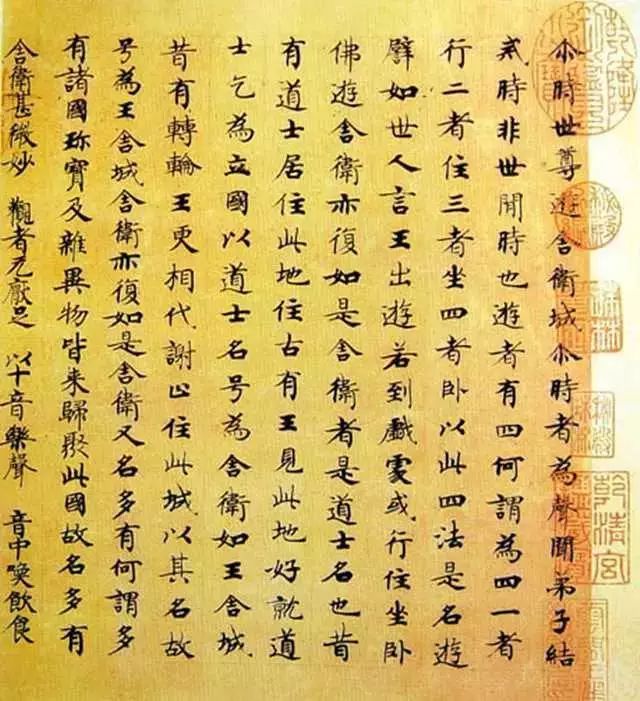 秘殿
珠林
乾清宮
尒時世尊遊舍衛城尒時者為聲聞弟子結
戒時非世間時也遊者有四何謂為四一者
行二者住三者坐四者卧以此四法是名遊
譬如世人言王出遊若到戲處或行住坐卧
佛遊舍衛亦復如是舍衛者是道士名也昔
有道士居住此地住古有王見此地好就道
士乞為立國以道士名号為舍衛如王舍城
昔有轉輪王更相代謝止住此城以其名故
号為王舍城舍衛亦復如是舍衛又名多有何謂多
有諸國珎寶及雜異物皆来歸聚此國故名多有
舍衛甚微妙 觀者无厭足 以十音樂聲 音中喚飲食